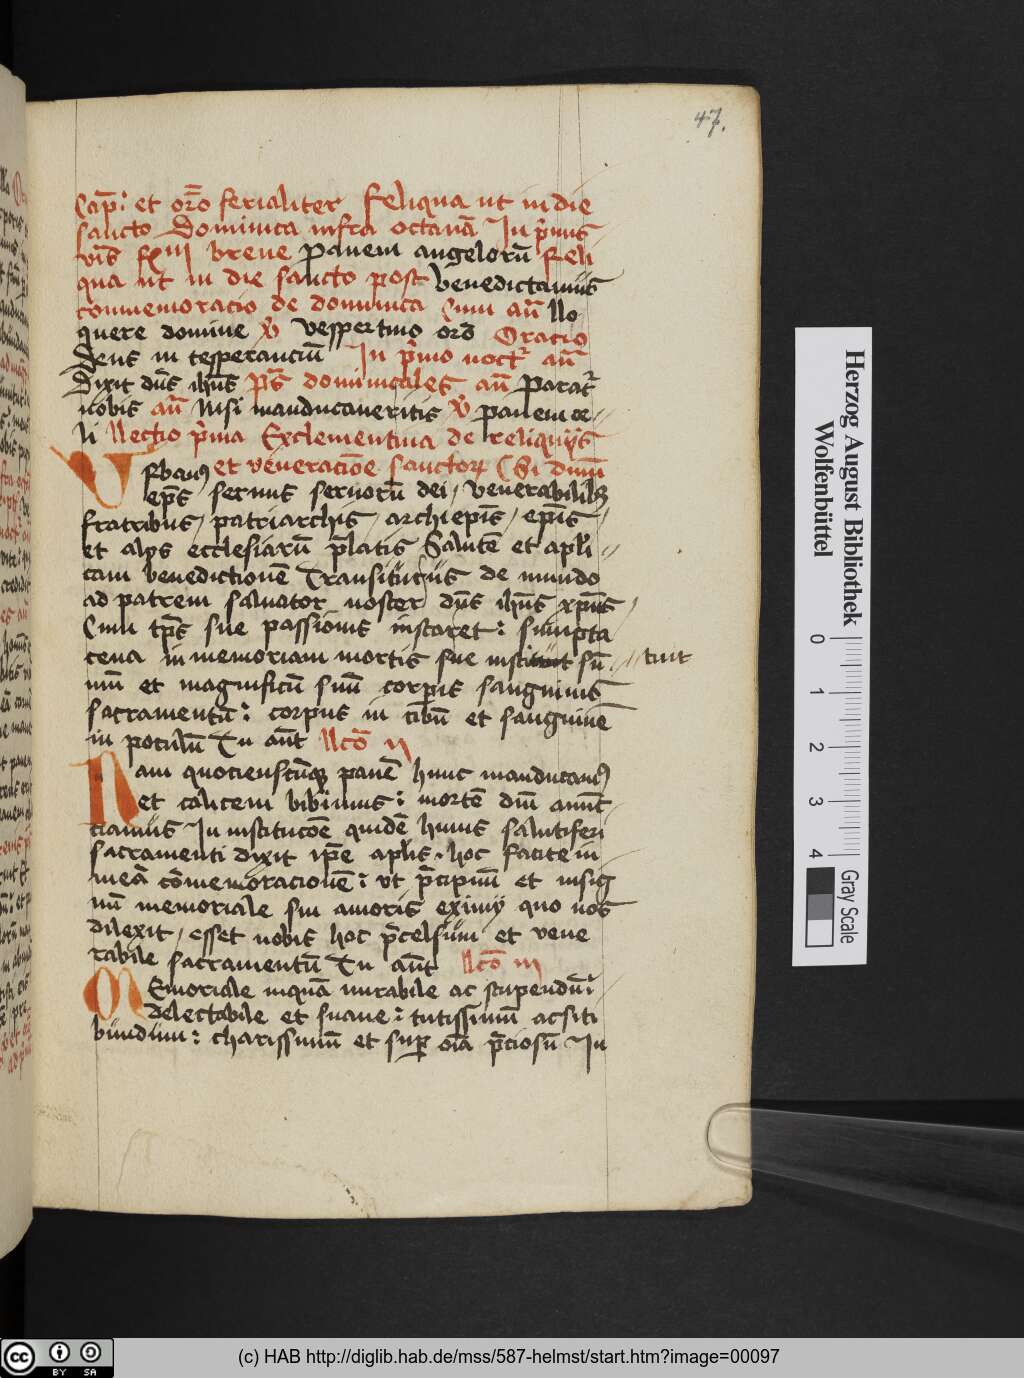 47.
Cap̄. et or̄o ferialiter Reliqua ut in die
sancto Dominica infra octauā In p̄mis
brene panem angelorū Reli
qua ut in die sancto post benedictamus
conmemoracio de dominica Cum an̄ llo
quere domine vesspertino ord̄ Oracio
Deus in tesperanciū In p̄mo noct̄ an̄
Dixit dn̄s ihūs ps̄ dominicales an̄ parat̄
nobis an̄ Nisi manducaueritis panem ce
li llectio p̄ma Exclementina de reliquijs
et veneracīoe sanctor Si dmm̄
Vrban9 ep̄s seruus seruorū dei, venerabilib9
fratribus, patriarchis, archiep̄is, ep̄is,
et alijs ecclesiarū p̄latis Salutē et apl̄i
cam benedictionē Transiturus de mundo
ad patrem saluator noster dn̄s ihūs xp̄us
Cum tp̄s sue passionis instaret: sumpta
cena in memoriam mortis sue instituit sū // tuit
mū et magnificū suū corpis sanguinis
sacramentū: corpus in cibū et sanguinē
in poculū Tu aūt llc̄o ij
Nam quocienscūq panē hunc manducam9
et calicem bibimus: mortē dnī annūc
ciamus In institucōe quidē huius salutiferi
sacramenti dixit ip̄e apl̄is, hoc facite in
meā cōmemoracionē: vt p̄cipuū et insig
nū memoriale sui amoris eximij quo nos
dilexit, esset nobis hoc p̄celsum et vene
rabile sacramentū Tu aūt llc̄o iij
Memoriale inquā mirabile ac stupendū:
delectabile et suaue: tutissimū ac secu
bundum: charissimū et sup oīa p̄ciosū In
Herzog August Bibliothek
Wolfenbüttel
0 1 2 3 4
Gray Scale
cc BY SA
(c) HAB http://diglib.hab.de/mss/587-helmst/start.htm?image=00097